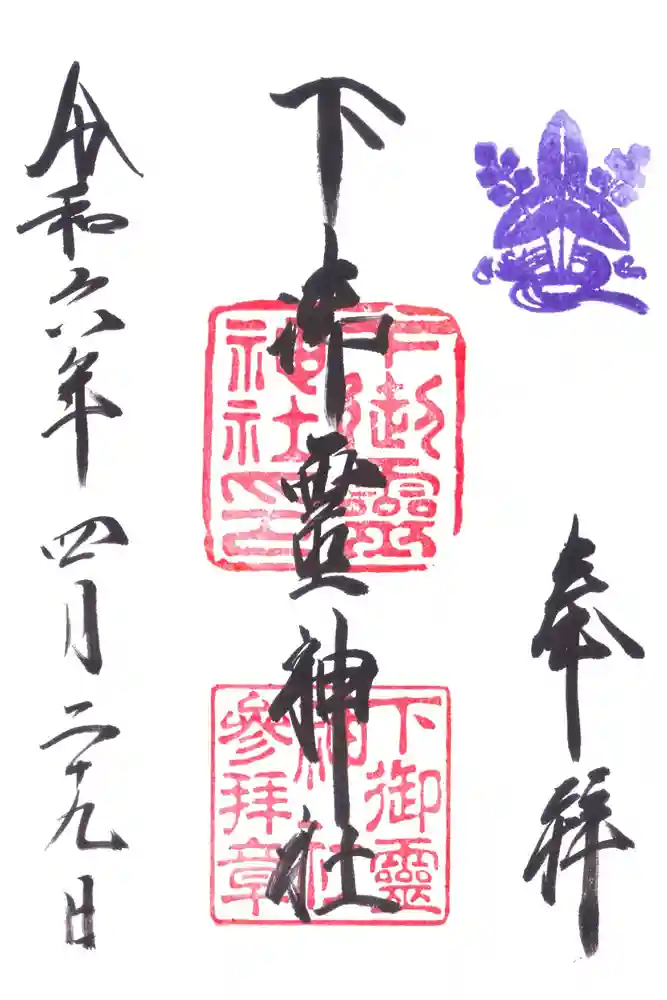 奉拝
下御霊神社
下御靈神社印
下御靈神社參拜章
令和六年 四月二十九日